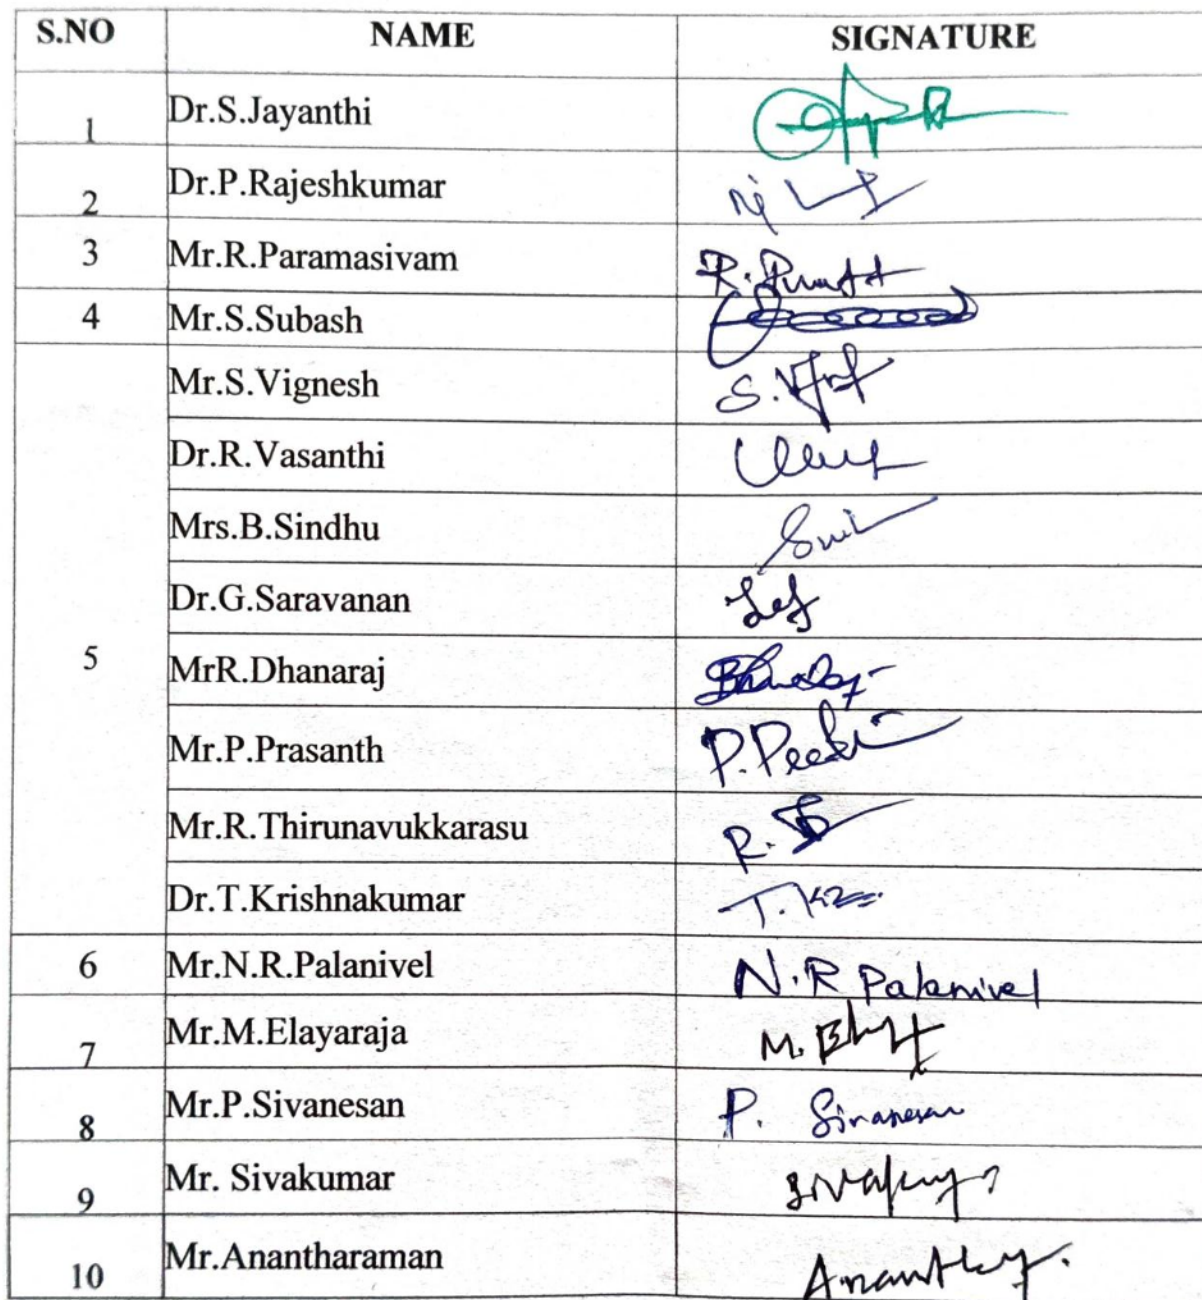 S.NO NAME SIGNATURE
1 Dr.S.Jayanthi
2 Dr.P.Rajeshkumar
3 Mr.R.Paramasivam R.
4 Mr.S.Subash
Mr.S.Vignesh S.
Dr.R.Vasanthi
Mrs.B.Sindhu
Dr.G.Saravanan
5 MrR.Dhanaraj
Mr.P.Prasanth P.
Mr.R.Thirunavukkarasu R.
Dr.T.Krishnakumar T.
6 Mr.N.R.Palanivel N.R Palanivel
7 Mr.M.Elayaraja M.
8 Mr.P.Sivanesan P. Sivanesan
9 Mr. Sivakumar
10 Mr.Anantharaman